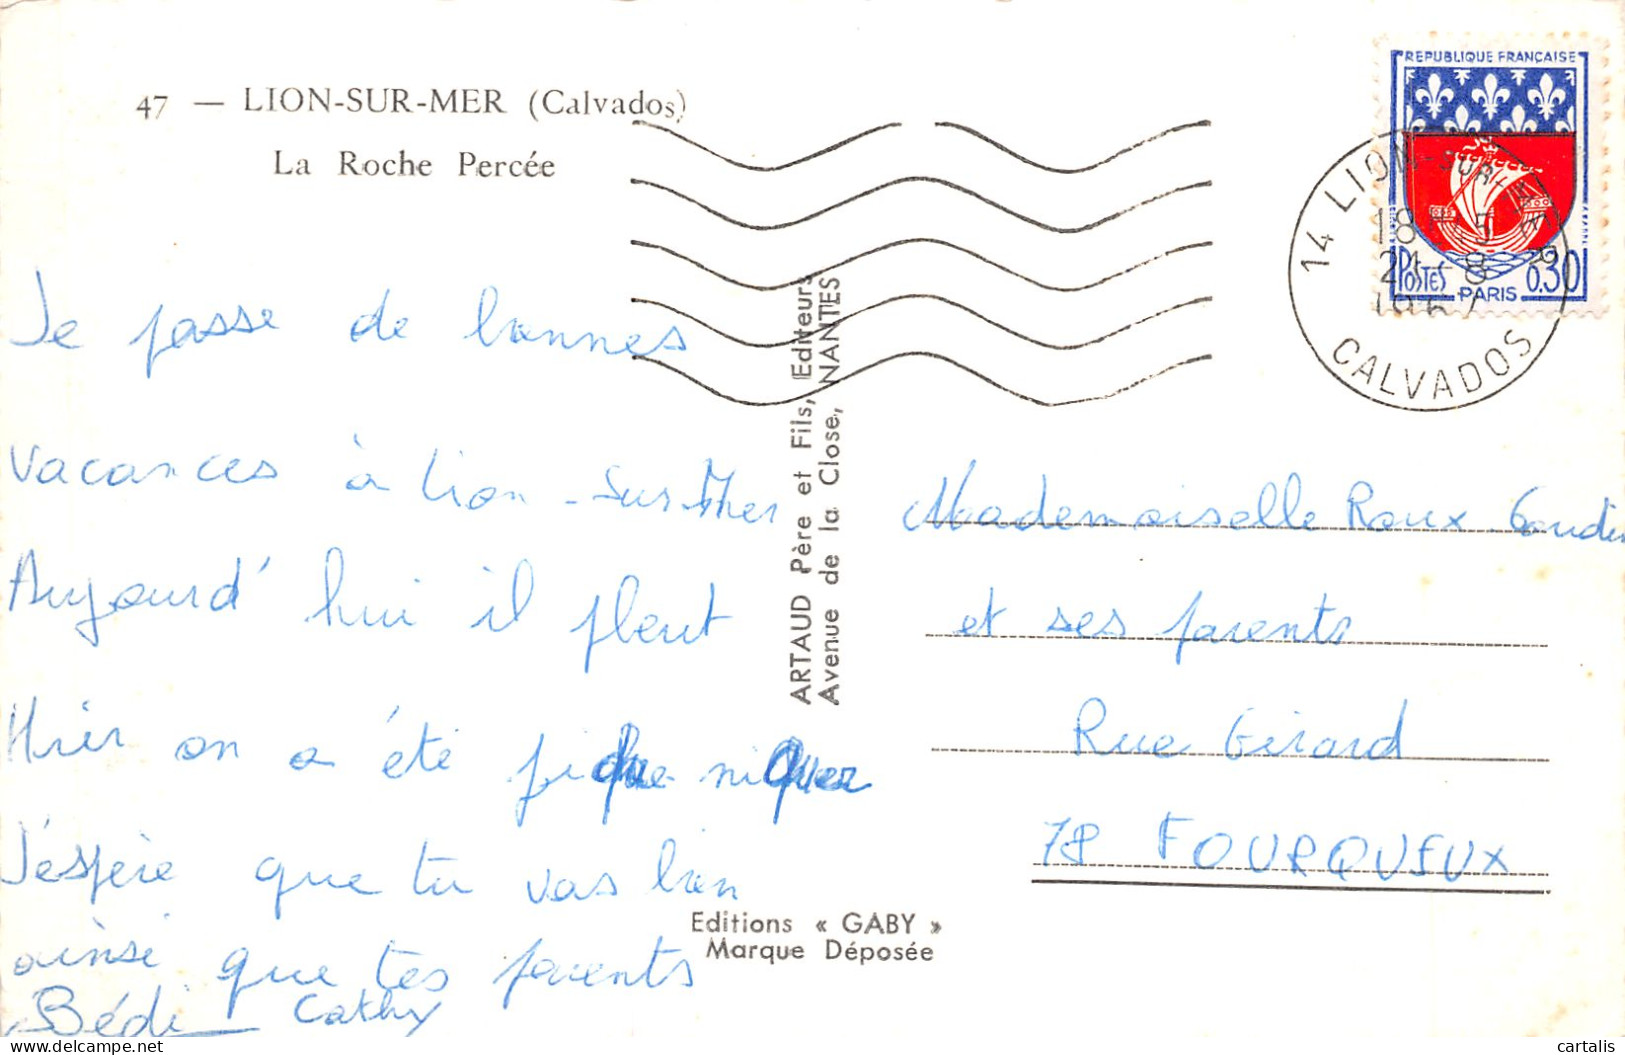 47 — LION-SUR-MER (Calvados)
La Roche Percée
Je passe de bonnes
vacances à Lion-sur-Mer
Aujourd'hui il pleut
Hier on a été pique niquer
J'espère que tu vas bien
ainsi que tes parents
Bédi Cathy
ARTAUD Père et Fils, Editeurs
Avenue de la Close, NANTES
Editions « GABY »
Marque Déposée
REPUBLIQUE FRANÇAISE
POSTES PARIS 0,30
14 LION-SUR-MER
18 H 15
24-8
CALVADOS
Mademoiselle Roux
et ses parents
Rue Girard
78 FOURQUEUX
cartalis